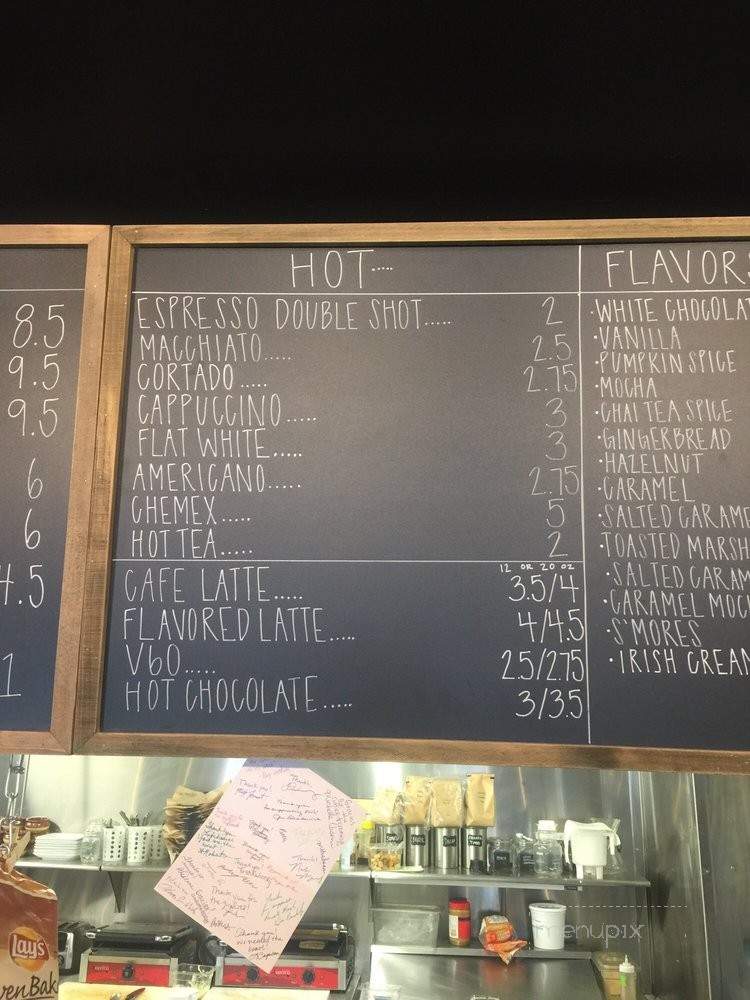 8.5
9.5
9.5
6
6
4.5
1
HOT.....
ESPRESSO DOUBLE SHOT..... 2
MACCHIATO..... 2.5
CORTADO..... 2.75
CAPPUCCINO..... 3
FLAT WHITE..... 3
AMERICANO..... 2.75
CHEMEX..... 5
HOT TEA..... 2
12 OR 20 OZ
CAFE LATTE..... 3.5/4
FLAVORED LATTE..... 4/4.5
V60..... 2.5/2.75
HOT CHOCOLATE..... 3/3.5
FLAVORS
·WHITE CHOCOLAT
·VANILLA
·PUMPKIN SPICE
·MOCHA
·CHAI TEA SPICE
·GINGERBREAD
·HAZELNUT
·CARAMEL
·SALTED CARAME
·TOASTED MARSH
·SALTED CARAM
·CARAMEL MOC
·S'MORES
·IRISH CREAM
Lay's
venBak
menupix